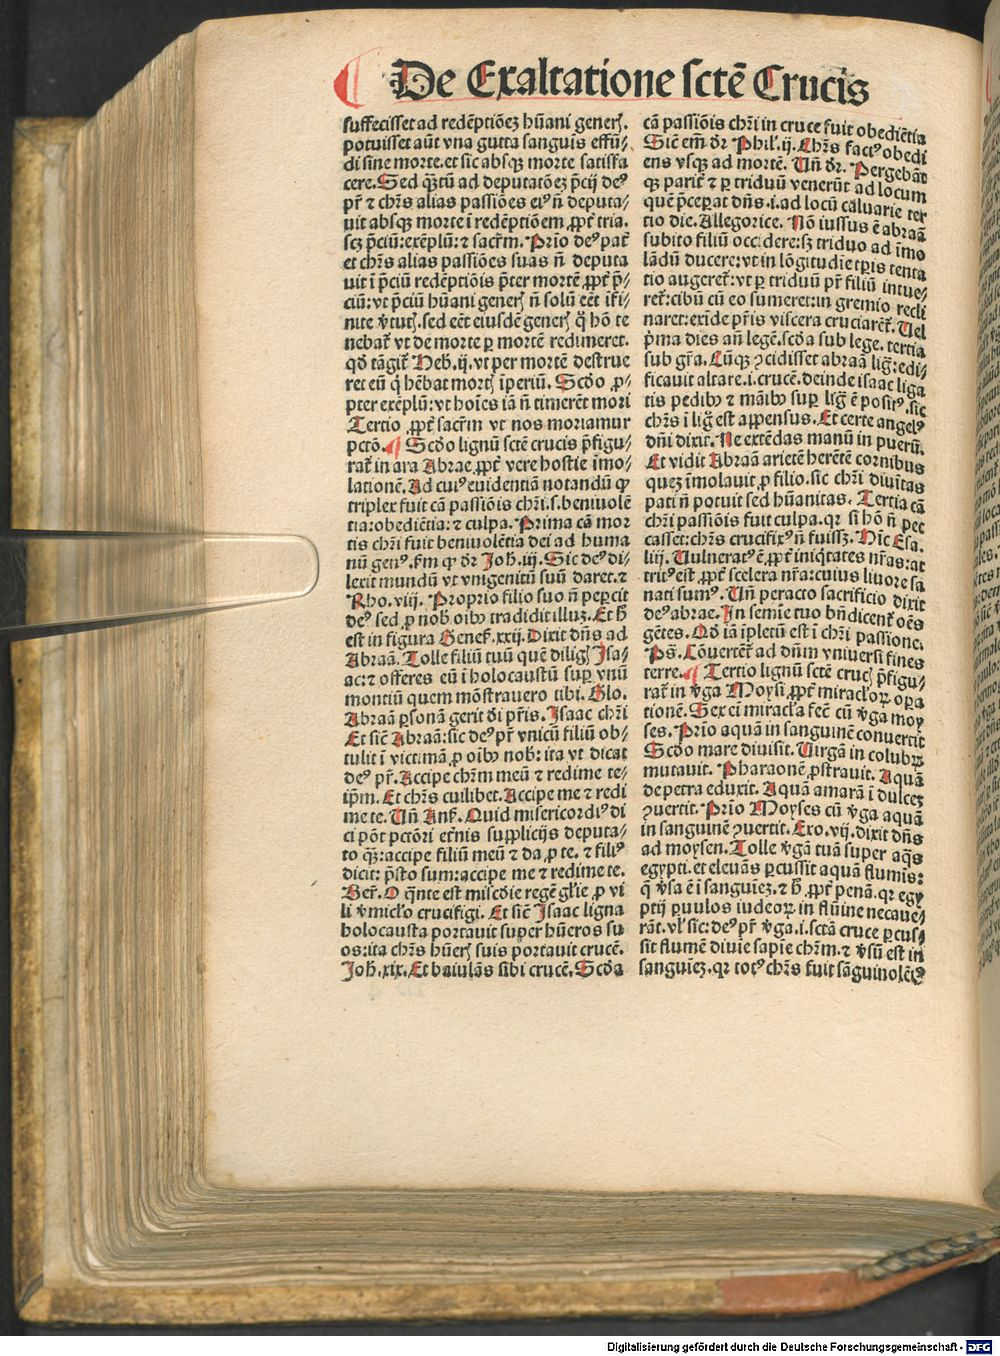 De Exaltatione sctē Crucis
suffecisset ad redēptiōeȝ hūani generꝭ.
potuisset aūt vna gutta sanguis effū-
di sine morte. et sic absqꝫ morte satisfa
cere. Sed qꝫtū ad deputatōeȝ p̄cij deꝰ
pr̄ ⁊ chr̄s alias passiōes eiꝰ n̄ deputa-
uit absqꝫ morte ī redēptiōem ꝓpt̄ tria.
scꝫ p̄ciū: exēplū: ⁊ sacr̄m. Prio deꝰ pat̄
et chr̄s alias passiōes suas n̄ deputa
uit ī p̄ciū redēptiōis p̄ter mortē ꝓpt̄ p̄-
ciū: vt p̄ciū hūani generꝭ n̄ solū eēt īfi-
nite v̄tutꝭ. sed eēt eiusdē generꝭ q̄ hō te
nebat̄ vt de morte ꝑ mortē redimeret.
qd̄ tāgit̄ Heb. ij. vt per mortē destrue
ret eū q̄ hēbat mortꝭ īperiū. Scd̄o ꝓ-
pter exēplū: vt hoīes iā n̄ timerēt mori
Tertio ꝓpt̄ sacr̄m vt nos moriamur
pctō. ¶ Scd̄o lignū sctē crucis p̄figu-
rat̄ in ara Abrae ꝓpt̄ vere hostie īmo-
lationē. Ad cuiꝰ euidentiā notandū ꝙ
triplex fuit cā passiōis chr̄i. s. beniuolē
tia: obediētia: ⁊ culpa. Prima cā mor
tis chr̄i fuit beniuolētia dei ad huma
nū genꝰ. fm ꝙ dr̄ Joh̄. iij. Sic deꝰ di-
lexit mundū vt vnigenitū suū daret. ⁊
Rho. viij. Proprio filio suo n̄ pepercit
deꝰ sed ꝓ nob̄ oibꝰ tradidit illuȝ. Et h̄
est in figura Genes̄. xxij. Dixit dn̄s ad
Abraā. Tolle filiū tuū quē diligꝭ Isa-
ac: ⁊ offeres eū ī holocaustū suꝑ vnū
montiū quem mōstrauero tibi. Glo.
Abraā ꝑsonā gerit dī pr̄is. Isaac chr̄i
Et sic̄ Abraā: sic deꝰ pr̄ vnicū filiū ob-
tulit ī victimā ꝓ oibꝰ nob̄: ita vt dicat
deꝰ pr̄. Accipe chr̄m meū ⁊ redime te-
ip̄m. Et chr̄s cuilibet. Accipe me ⁊ redi
me te. Vn̄ Ans̄. Quid misericordiꝰ di
ci pōt pctōri et̄nis supplicijs deputa-
to qꝫ: accipe filiū meū ⁊ da ꝓ te. ⁊ filiꝰ
dicit: p̄sto sum: accipe me ⁊ redime te.
Ber̄. O q̄nte est mis̄cdie regē gl̄ie ꝓ vi
li v̄miclo crucifigi. Et sic̄ Isaac ligna
holocausta portauit super hūeros su
os: ita chr̄s hūerꝭ suis portauit crucē.
Joh̄. xix. Et baiulās sibi crucē. Scd̄a
cā passiōis chr̄i in cruce fuit obediētia
Sic̄ em̄ dr̄ Phil̄. ij. Chr̄s factꝰ obedi
ens vsqꝫ ad mortē. Vn̄ dr̄. Pergebāt
qꝫ parit̄ ⁊ ꝑ triduū venerūt ad locum
quē p̄ceperat dn̄s. i. ad locū caluarie ter
tio die. Allegorice. Nō iussus ē abraā
subito filiū occidere: sꝫ triduo ad īmo
lādū ducere: vt in lōgitudīe tꝑis tenta
tio augeret̄: vt ꝑ triduū pr̄ filiū intue-
ret̄: cibū cū eo sumeret: in gremio recli
naret: exīde pr̄is viscera cruciarēt̄. Vel
p̄ma dies añ legē. scd̄a sub lege. tertia
sub gr̄a. Cūqꝫ ꝯcidisset abraā liḡ: edi-
ficauit altare. i. crucē. deinde isaac liga
tis pedibꝰ ⁊ māibꝰ suꝑ liḡ ē positꝰ. sic
chr̄s ī liḡ est appensus. Et certe angelꝰ
dn̄i dixit. Ne extēdas manū in puerū.
Et vidit Abraā arietē herētē cornibus
queȝ īmolauit ꝓ filio. sic chr̄i diuitas
pati n̄ potuit sed hūanitas. Tertia cā
chr̄i passiōis fuit culpa. qꝛ si hō n̄ pec
casset: chr̄s crucifixꝰ n̄ fuissꝫ. Hic Esa.
liij. Vulneratꝰ ē ꝓpt̄ iniq̄tates nr̄as: at
tritꝰ est ꝓpt̄ scelera nr̄a: cuius liuore sa
nati sumꝰ. Vn̄ peracto sacrificio dixit
deꝰ abrae. In semīe tuo bn̄dicent̄ oēs
gētes. Qd̄ iā īpletū est ī chr̄i passione.
Ps̄. Cōuertēt̄ ad dn̄m vniuersi fines
terre. ¶ Tertio lignū sctē crucꝭ p̄figu-
rat̄ in v̄ga Moysi ꝓpt̄ miracl̄oꝝ oꝑa
tionē. Sex ei miracl̄a fec̄ cū v̄ga moy
ses. Prio aquā in sanguinē conuertit
Scd̄o mare diuisit. Virgā in colubꝝ
mutauit. Pharaonē ꝓstrauit. Aquā
de petra eduxit. Aquā amarā ī dulceȝ
ꝯuertit. Prio Moyses cū v̄ga aquā
in sanguinē ꝯuertit. Exo. vij. dixit dn̄s
ad moysen. Tolle v̄gā tuā super aq̄s
egypti. et eleuās ꝑcussit aquā fluminis:
q̄ v̄sa ē ī sanguineȝ. ⁊ h̄ ꝓpt̄ penā. qꝛ egy
ptij ꝑuulos iudeoꝝ in flūine necaue-
rāt. vl̄ sic: deꝰ pr̄ v̄ga. i. sctā cruce ꝑcus-
sit flumē diuie sapie chr̄m. ⁊ v̄sū est in
sanguineȝ. qꝛ totꝰ chr̄s fuit sāguinolētꝰ
Digitalisierung gefördert durch die Deutsche Forschungsgemeinschaft - DFG